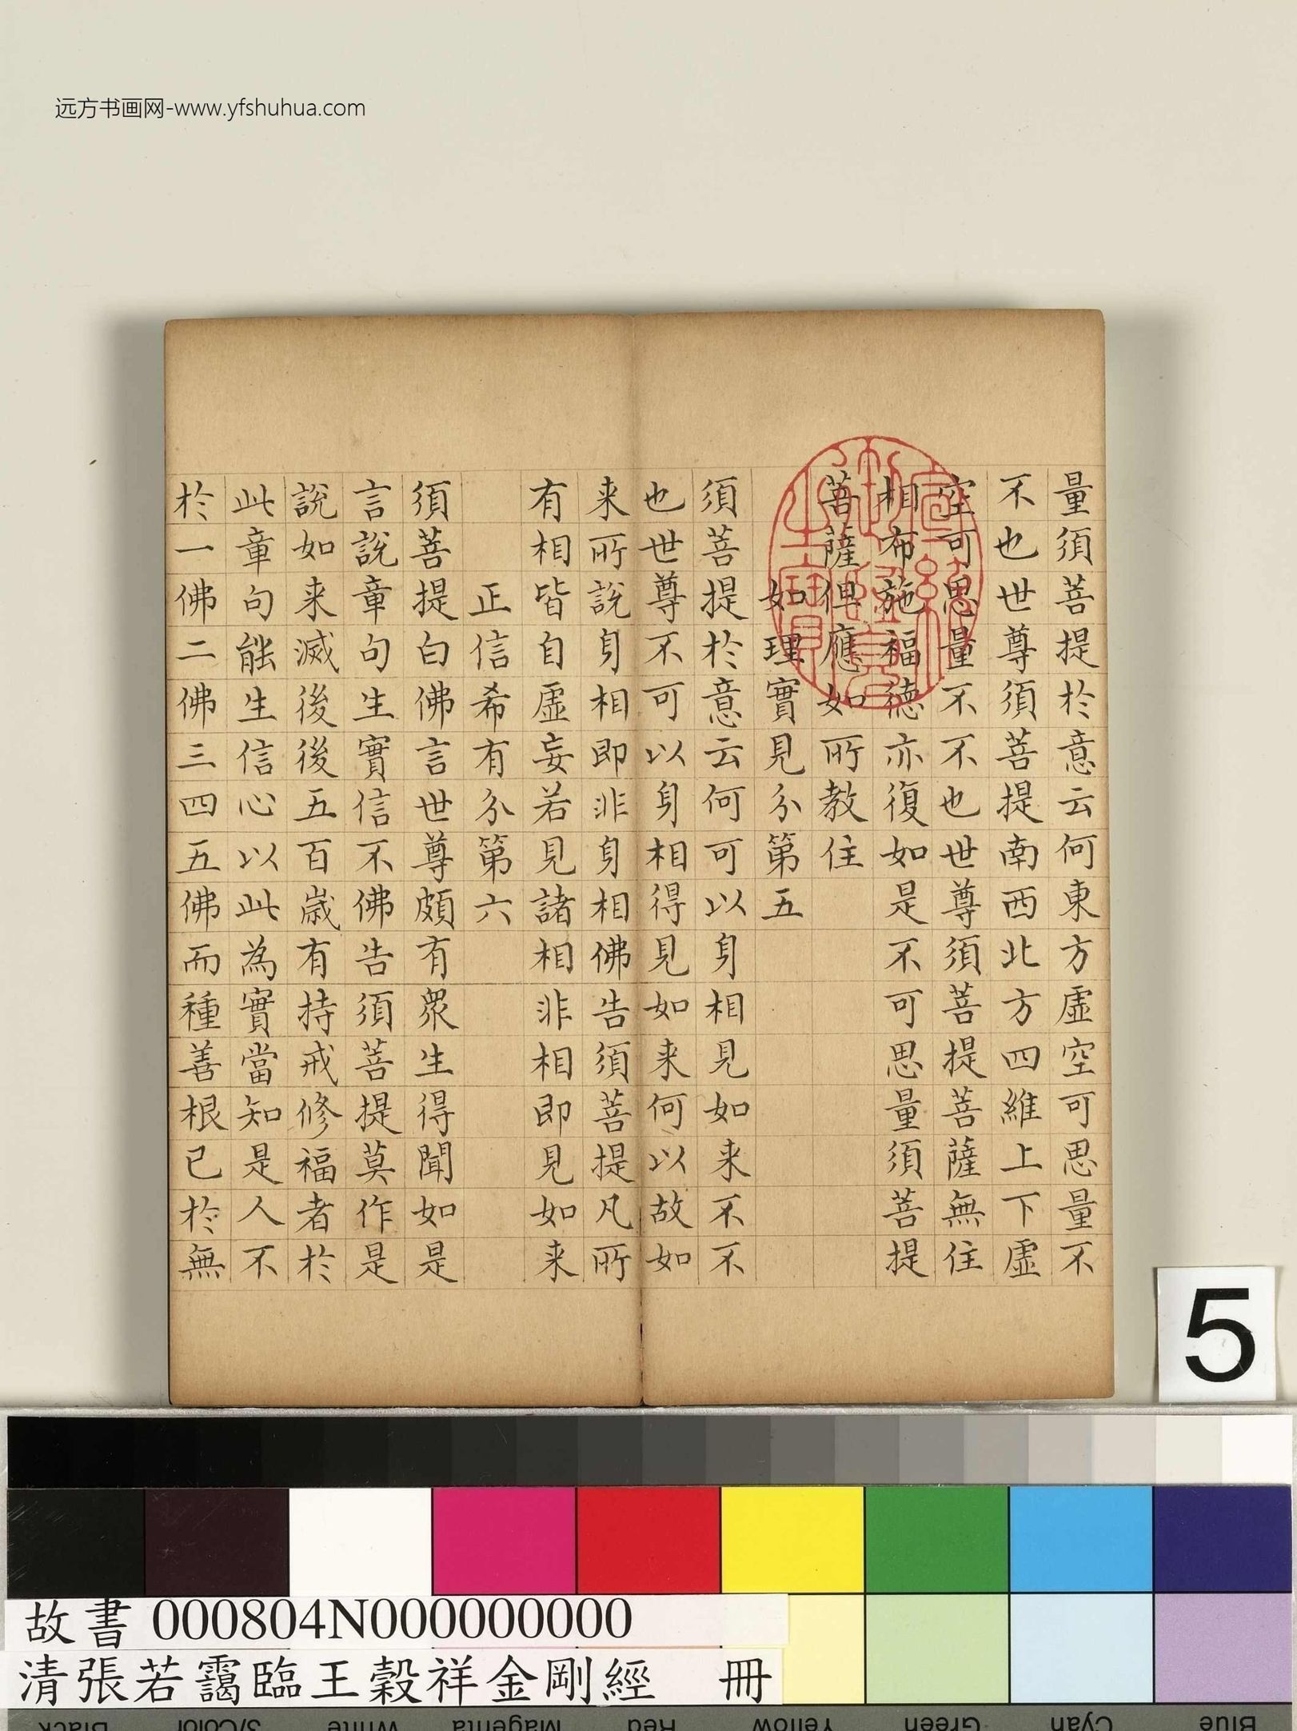 远方书画网-www.yfshuhua.com
量須菩提於意云何東方虛空可思量不
不也世尊須菩提南西北方四維上下虛
空可思量不不也世尊須菩提菩薩無住
相布施福德亦復如是不可思量須菩提
菩薩但應如所教住
如理實見分第五
須菩提於意云何可以身相見如来不不
也世尊不可以身相得見如来何以故如
来所說身相即非身相佛告須菩提凡所
有相皆自虛妄若見諸相非相即見如来
正信希有分第六
須菩提白佛言世尊頗有衆生得聞如是
言說章句生實信不佛告須菩提莫作是
說如来滅後後五百歲有持戒修福者於
此章句能生信心以此為實當知是人不
於一佛二佛三四五佛而種善根已於無
5
故書 000804N000000000
清張若靄臨王穀祥金剛經 冊
Black 3/Color White Magenta Red Yellow Green Cyan Blue